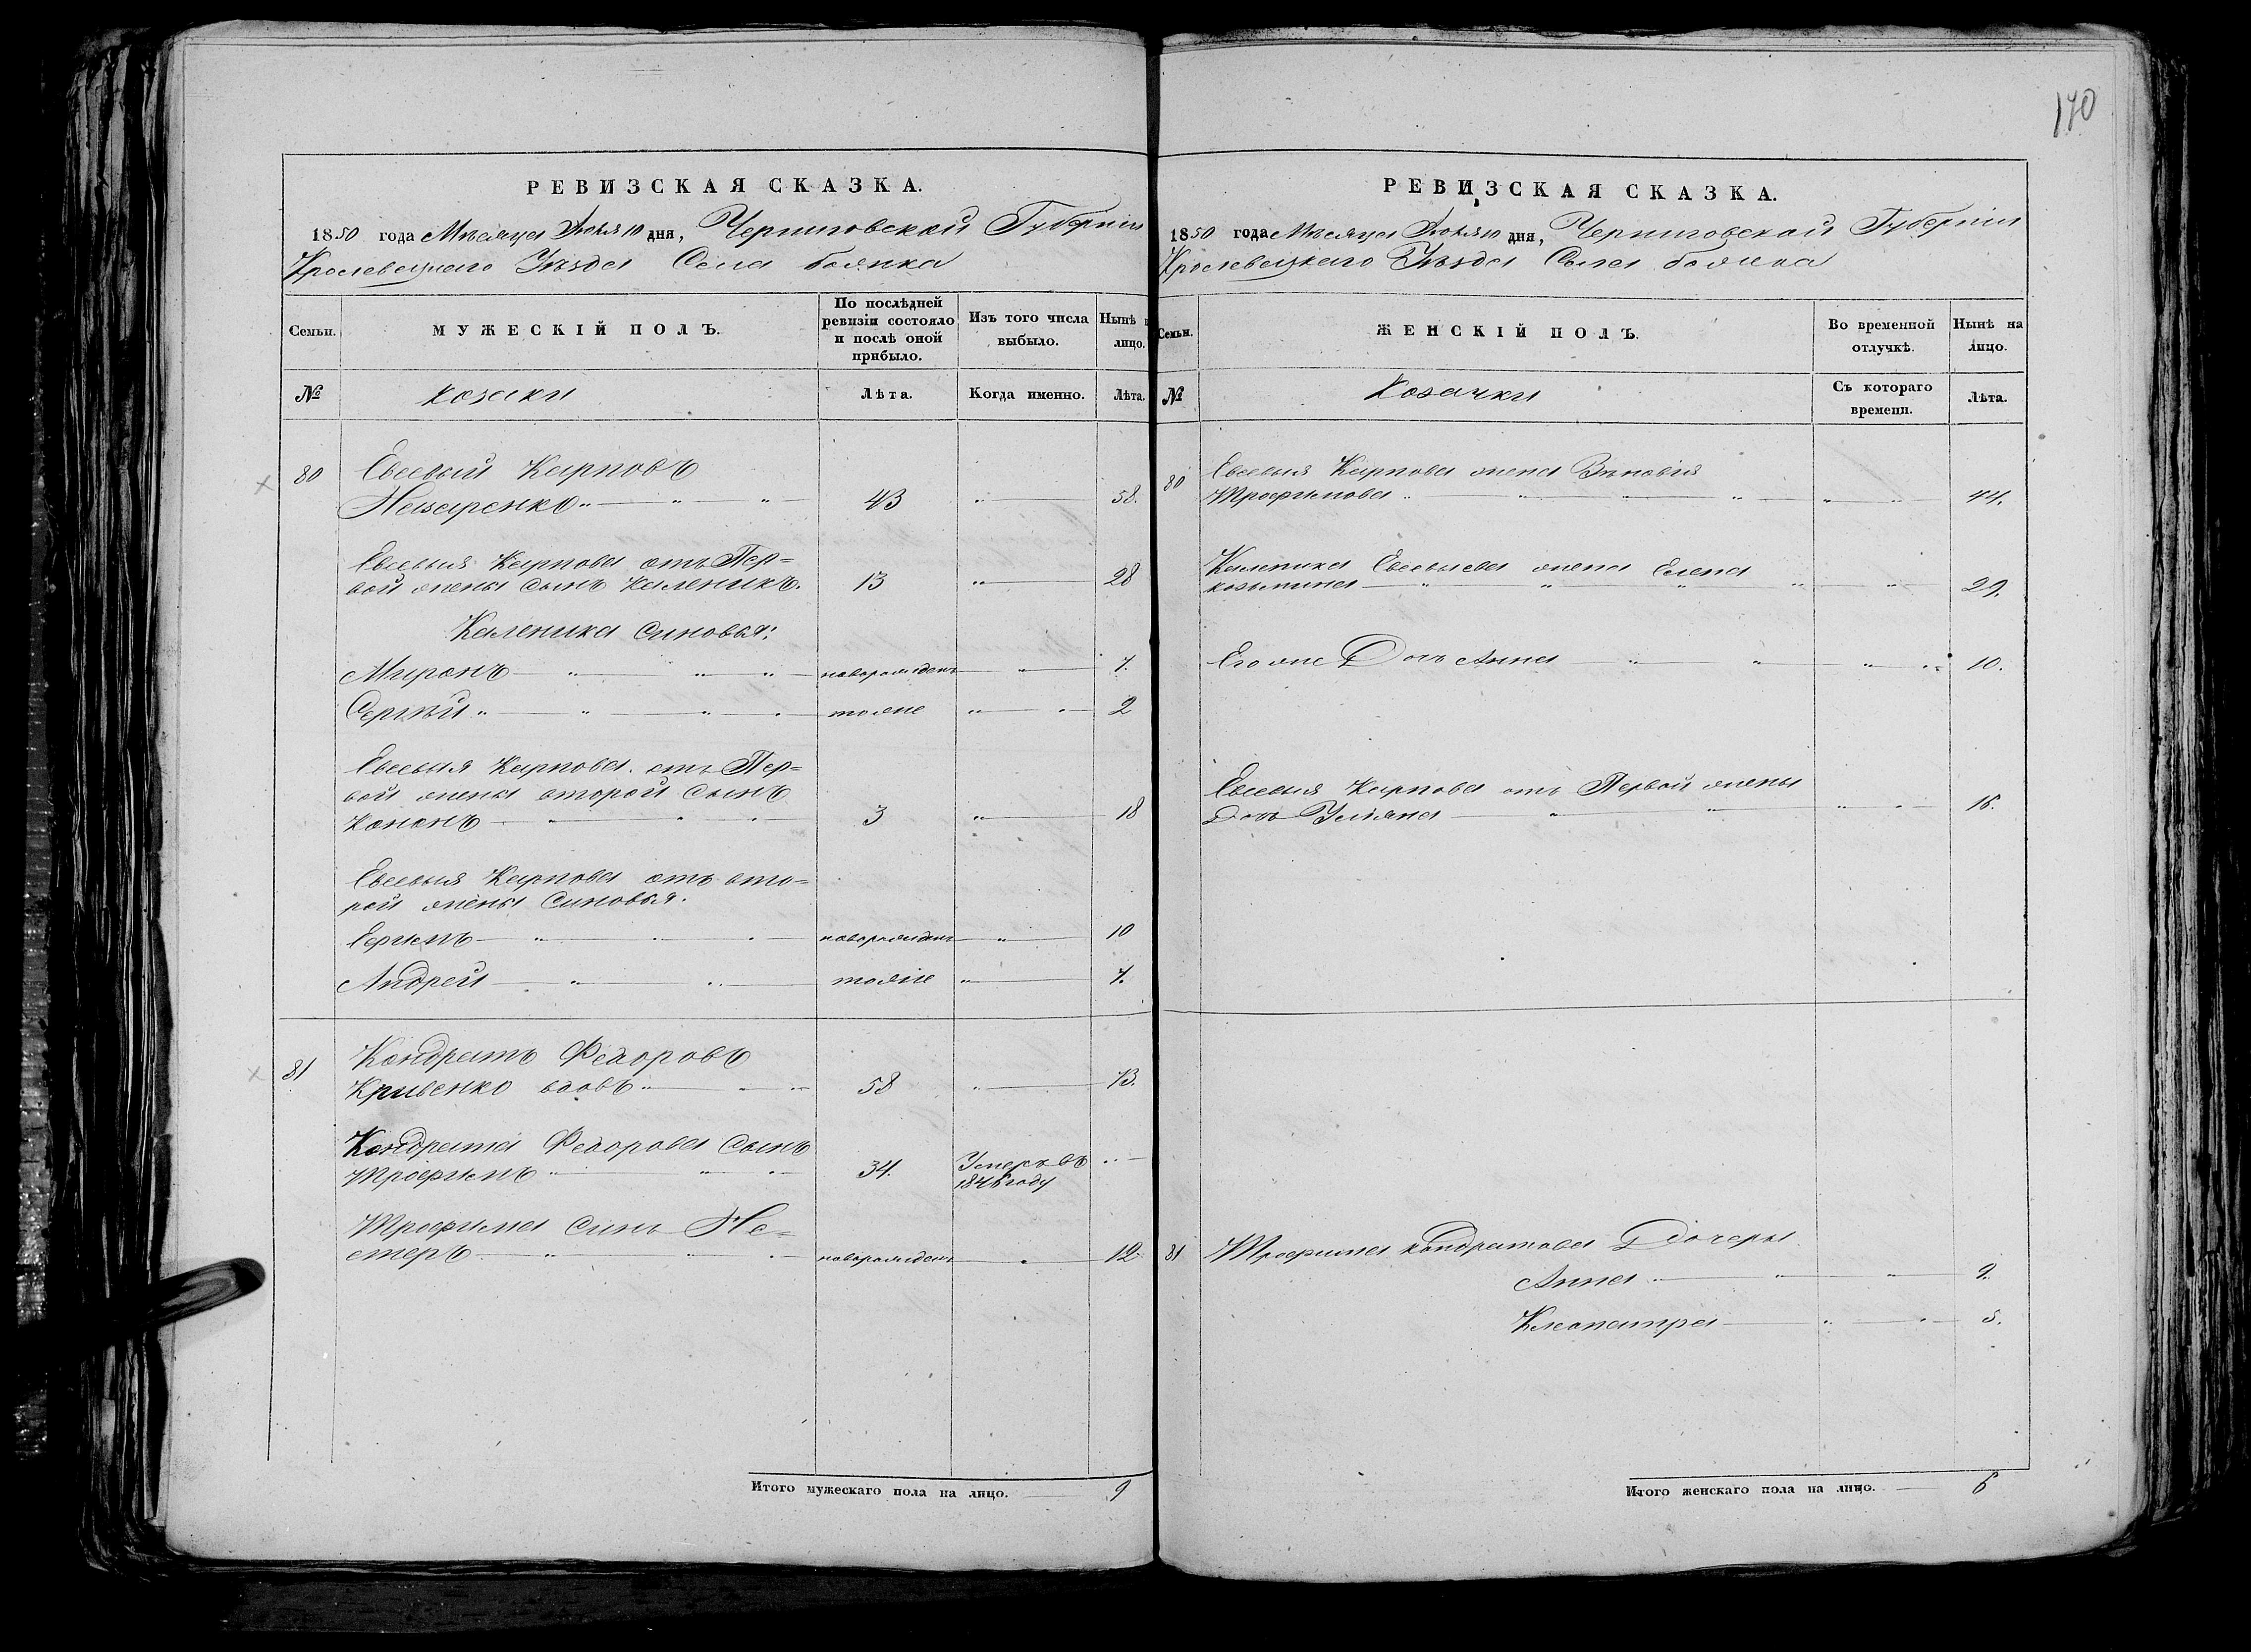 170
РЕВИЗСКАЯ СКАЗКА.
1850 года Мѣсяца Іюля 10 дня, Черниговской Губерніи
Кролевецкаго Уѣзда Села
Семьи.
МУЖЕСКІЙ ПОЛЪ.
По послѣдней ревизіи состояло и послѣ оной прибыло.
Изъ того числа выбыло.
Нынѣ
лицо.
№
козаки
Лѣта.
Когда именно.
Лѣта.
80
Евсевый Карповъ
Назаренко 43 58.
Евсевыя Карпова отъ Пер=
вой жены сынъ Каленикъ. 13 28
Каленика синовья:
Миронъ новорожденъ 7.
Сергѣй тоже 2
Евсевыя Карпова отъ Пер=
вой жены второй сынъ
Кононъ 3 18
Евсевыя Карпова отъ вто=
рой жены синовья.
Ефимъ новорожденъ 10
Андрей тоже 7.
81
Кондратъ Федоровъ
Кривенко вдовъ 58 73.
Кондрата Федорова сынъ
Трофимъ 34. Умеръ въ
году
Трофима синъ Не=
стеръ новорожденъ 12
Итого мужескаго пола на лицо. 9
РЕВИЗСКАЯ СКАЗКА.
1850 года Мѣсяца Іюля 10 дня, Черниговской Губерніи
Кролевецкаго Уѣзда Села
Семьи.
ЖЕНСКІЙ ПОЛЪ.
Во временной отлучкѣ.
Нынѣ на лицо.
№
Козачки
Съ котораго времени.
Лѣта.
80
Евсевыя Карпова жена Зѣновія
Трофимова 44.
Каленика Евсевыева жена Елена
козьмина 29.
Его же Дочь Анна 10.
Евсевыя Карпова отъ Первой жены
Дочь Уліяна 16.
81 Трофима Кондратова Дочеры
Анна 9.
Клеопатра 5.
Итого женскаго пола на лицо. 6